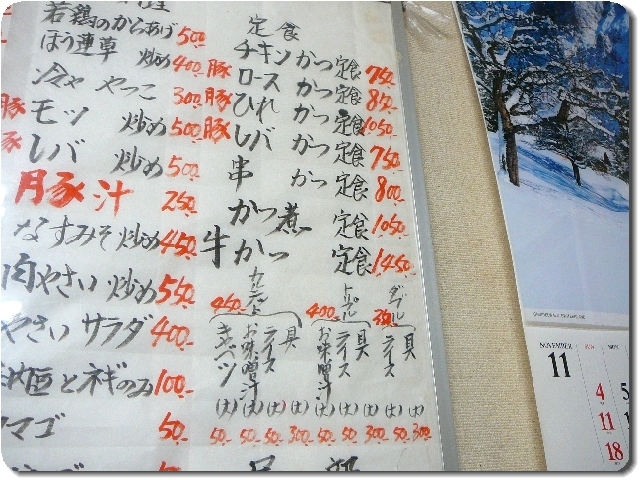 若鶏のからあげ 500.
ほう蓮草 炒め 400.
冷ややっこ 300.
豚モツ 炒め 500.
豚レバ 炒め 500.
豚汁 250.
なすみそ炒め 450.
肉やさい炒め 550.
やさいサラダ 400.
とネギのみ 100.
タマゴ 50.
定食
チキンかつ定食 750.
豚ロースかつ定食 850.
豚ひれかつ定食 1050.
豚レバかつ定食 750.
串かつ定食 800.
かつ煮定食 1050.
牛かつ定食 1450.
カルテット 450.
キャベツ(大) 50.
お味噌汁(大) 50.
ライス(大) 50.
具 300.
トリプル 400.
お味噌汁(大) 50.
ライス(大) 50.
具(大) 300.
ダブル
ライス(大) 50.
具(大) 300.
NOVEMBER
11
4
11
18
5